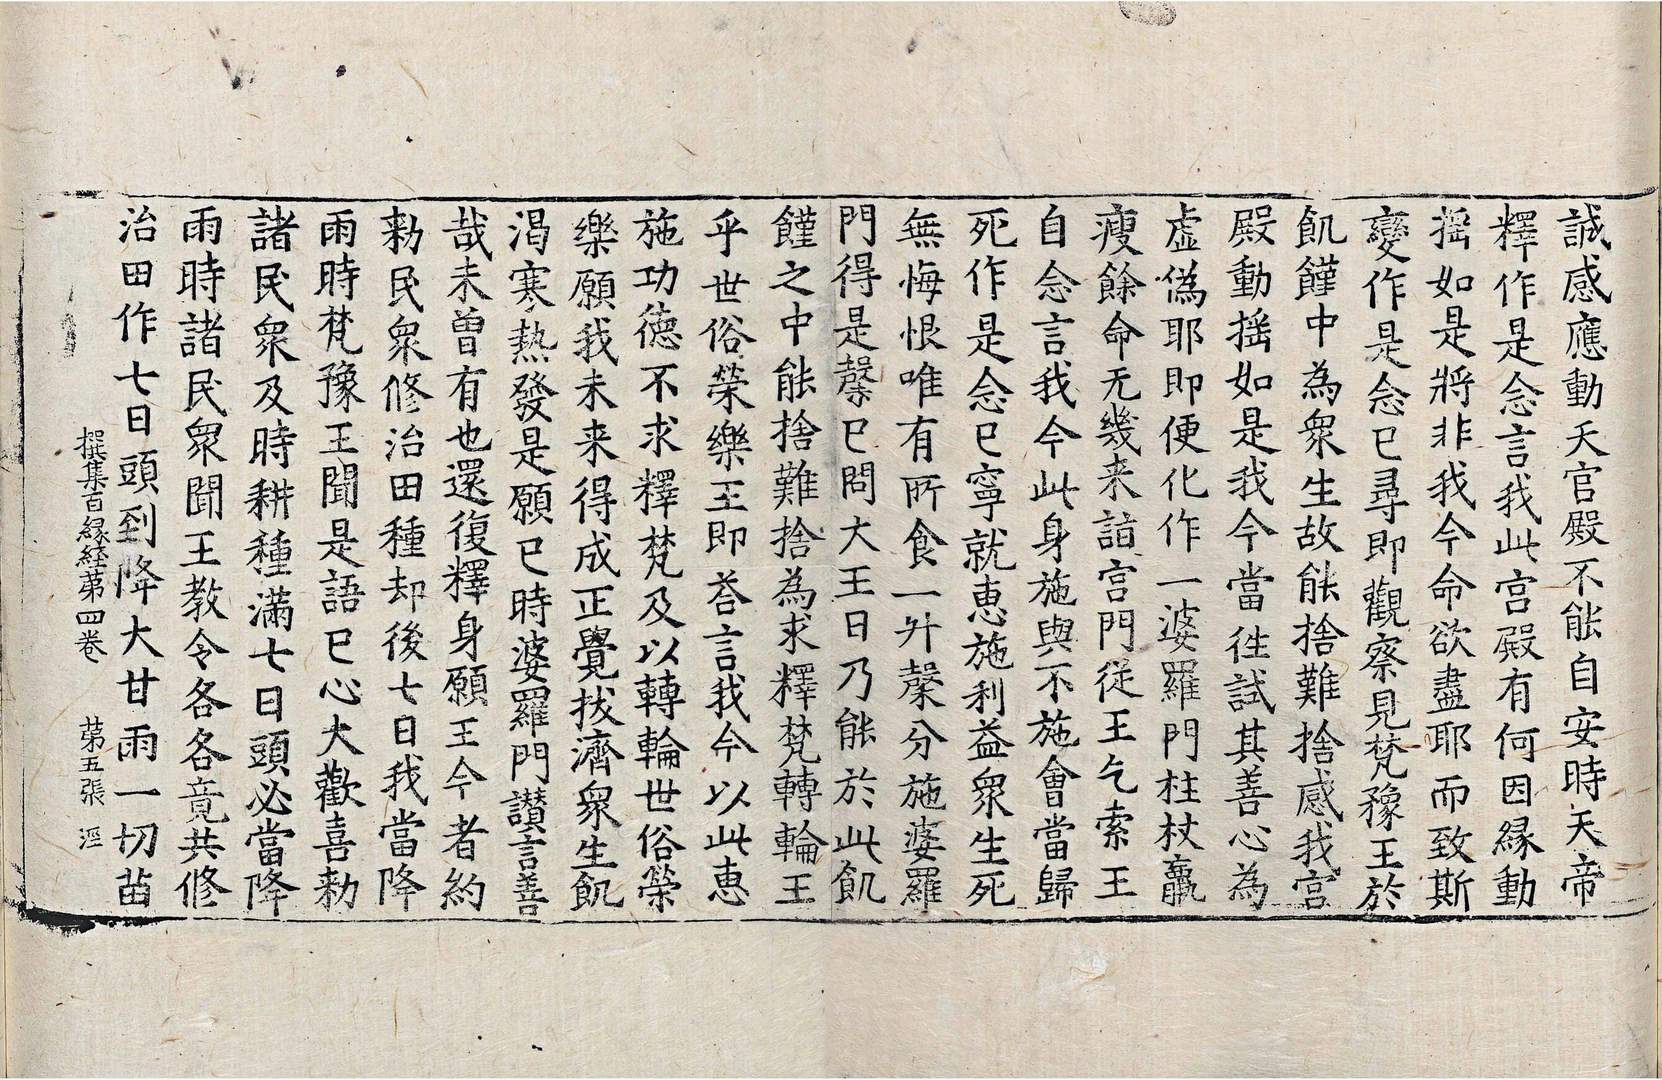 誠感應動天官殿不能自安時天帝
釋作是念言我此宮殿有何因緣動
揺如是將非我今命欲盡耶而致斯
變作是念已尋即觀察見梵豫王於
飢饉中為衆生故能捨難捨感我宮
殿動揺如是我今當往試其善心為
虛偽耶即便化作一婆羅門柱杖羸
瘦餘命无幾来詣宮門従王乞索王
自念言我今此身施與不施會當歸
死作是念已寧就恵施利益衆生死
無悔恨唯有所食一升糜分施婆羅
門得是糜已問大王曰乃能於此飢
饉之中能捨難捨為求釋梵轉輪王
乎世俗榮樂王即荅言我今以此恵
施功德不求釋梵及以轉輪世俗榮
樂願我未来得成正覺拔濟衆生飢
渇寒熱發是願已時婆羅門讃言善
哉未曽有也還復釋身願王今者約
勑民衆修治田種却後七日我當降
雨時梵豫王聞是語已心大歡喜勑
諸民衆及時耕種滿七日頭必當降
雨時諸民衆聞王教令各各竟共修
治田作七日頭到降大甘雨一切苗
撰集百縁経苐四巻 苐五張 涇